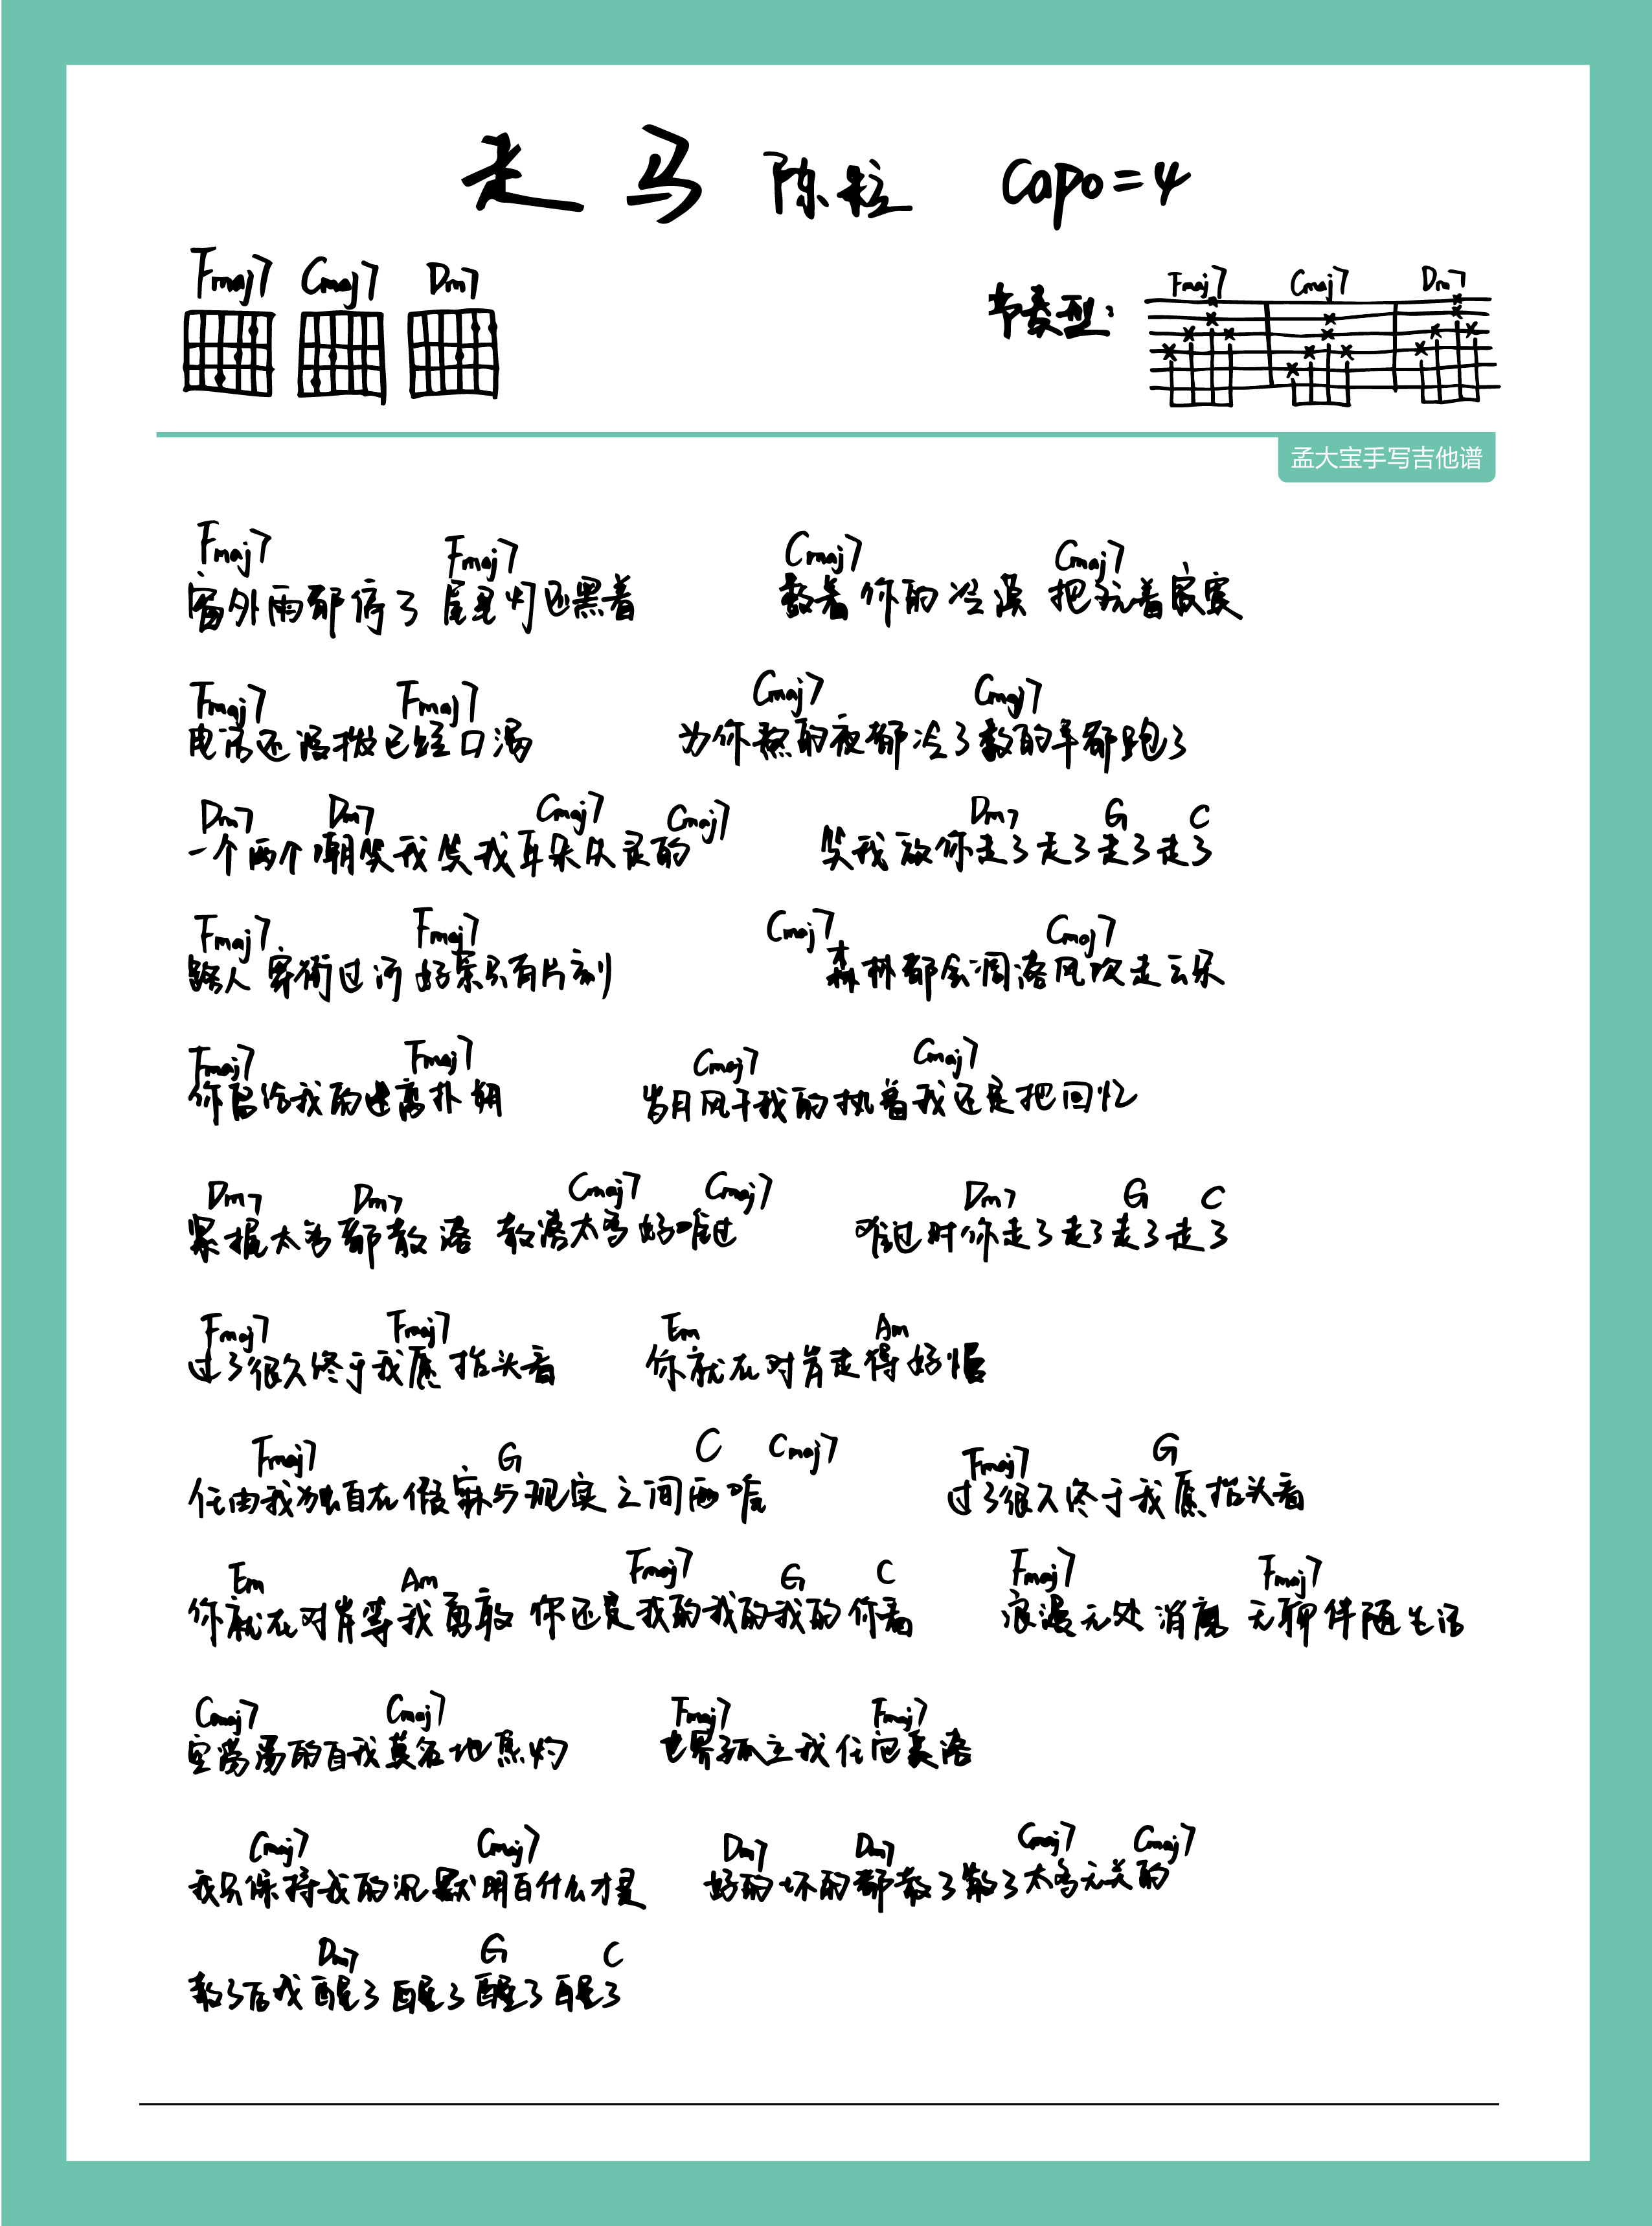 走马 陈粒 Capo=4
Fmaj7 Cmaj7 Dm7
节奏型: Fmaj7 Cmaj7 Dm7
孟大宝手写吉他谱
Fmaj7 Fmaj7 Cmaj7 Cmaj7
窗外雨都停了 屋里灯还黑着 数着你的冷漠 把玩着寂寞
Fmaj7 Fmaj7 Cmaj7 Cmaj7
电话还没拨已经口渴 为你熬的夜都冷了数的羊都跑了
Dm7 Dm7 Cmaj7 Cmaj7 Dm7 G C
一个两个嘲笑我笑我耳朵失灵的 笑我放你走了走了走了走了
Fmaj7 Fmaj7 Cmaj7 Cmaj7
路人穿街过河好景只有片刻 森林都会凋落风吹走云朵
Fmaj7 Fmaj7 Cmaj7 Cmaj7
你留给我的迷离扑朔 岁月风干我的执着我还是把回忆
Dm7 Dm7 Cmaj7 Cmaj7 Dm7 G C
紧握太多都散落 散落太多好难过 难过对你走了走了走了走了
Fmaj7 Fmaj7 Em Am
过了很久终于我愿抬头看 你就在对岸走得好慢
Fmaj7 G C Cmaj7 Fmaj7 G
任由我独自在假寐与现实之间两难 过了很久终于我愿抬头看
Em Am Fmaj7 G C Fmaj7 Fmaj7
你就在对岸等我勇敢 你还是我的我的我的你看 浪漫无处消磨 无聊伴随生活
Cmaj7 Cmaj7 Fmaj7 Fmaj7
空荡荡的自我莫名地焦灼 世界孤立我任它奚落
Cmaj7 Cmaj7 Dm7 Dm7 Cmaj7 Cmaj7
我只保持我的沉默明白什么才是 好的坏的都散了散了太多无关的
Dm7 G C
散了后我醒了醒了醒了醒了